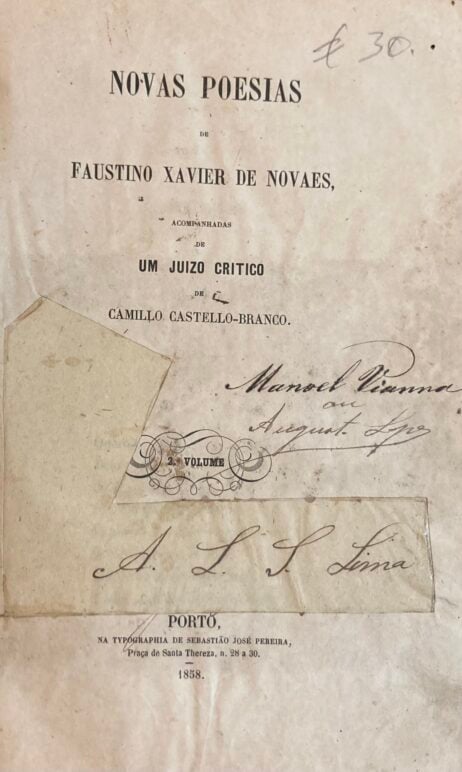 30.
NOVAS POESIAS
DE
FAUSTINO XAVIER DE NOVAES,
ACOMPANHADAS
DE
UM JUIZO CRITICO
DE
CAMILLO CASTELLO-BRANCO.
Manoel Vianna
ou
August. Lpes
2.º VOLUME
A. L. S. Lima
PORTO,
NA TYPOGRAPHIA DE SEBASTIÃO JOSÉ PEREIRA,
Praça de Santa Thereza, n. 28 a 30.
1858.